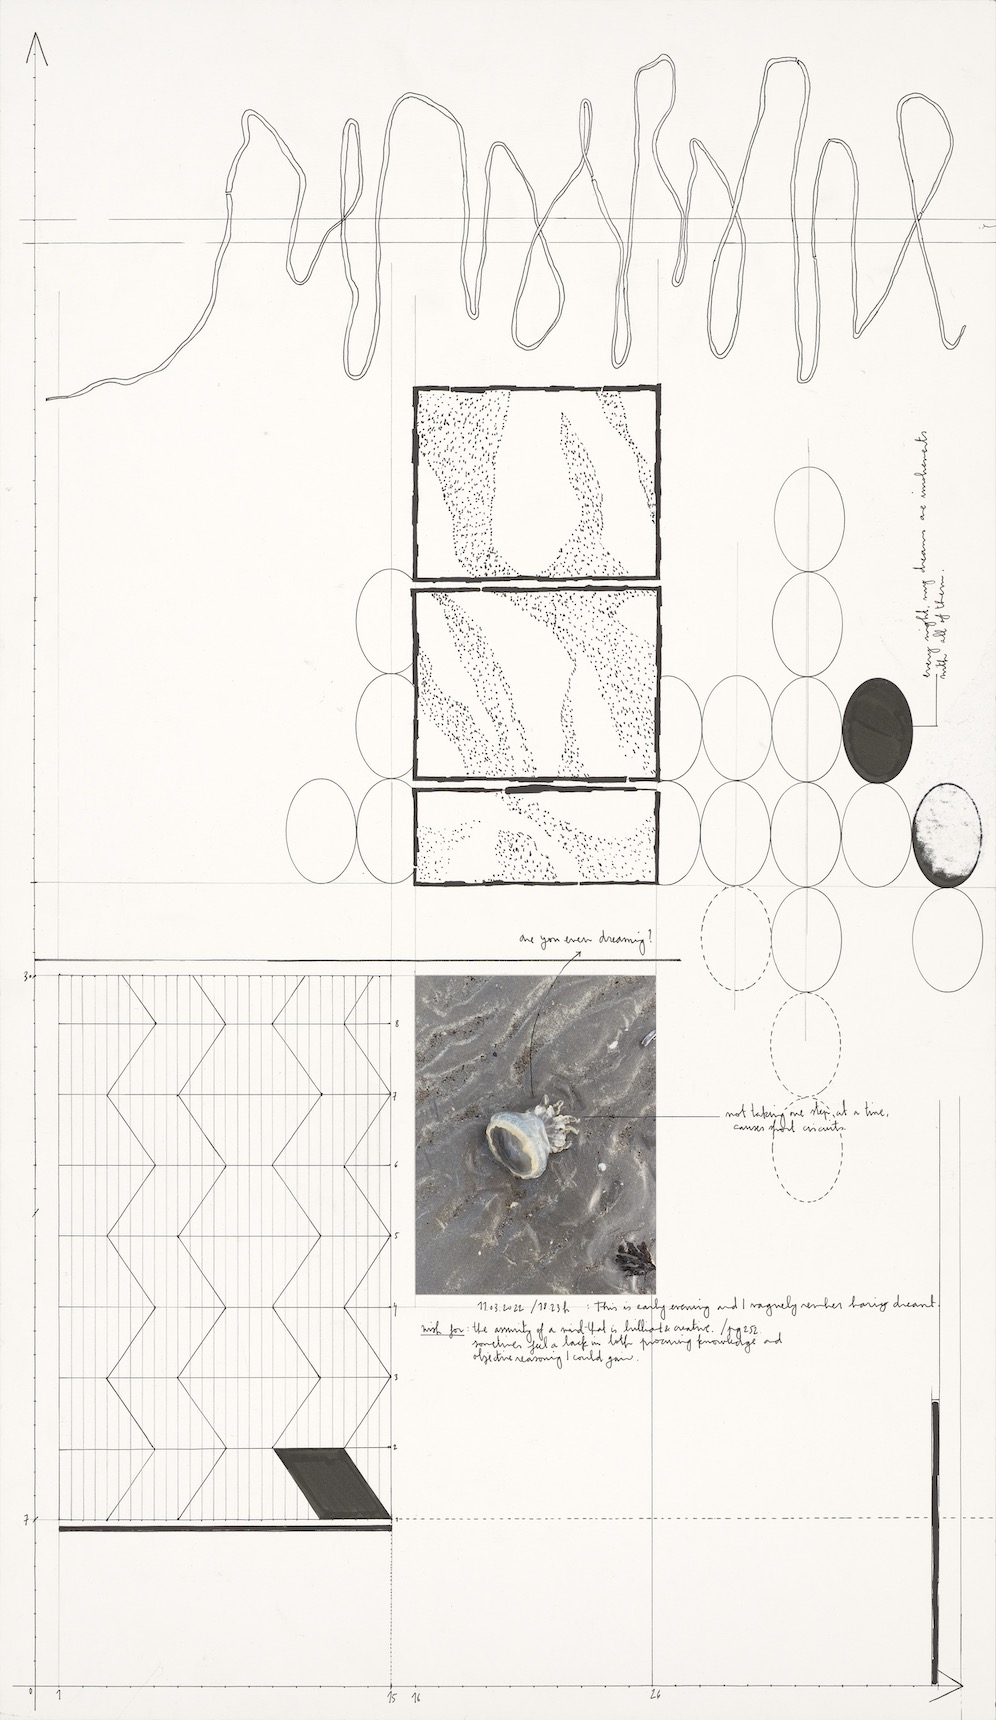 every night, my dreams are inclements
with all of them.
are you even dreaming?
30
8
7
6
5
4
3
2
1
7
not taking one step, at a time,
causes short circuits
11.03.2022 / 18:23h : This is early evening and I vaguely rember having dreamt.
wish for: the assurity of a mind that is brilliant & creative. / pg 252
sometimes feel a lack in both procuring knowledge and
objective reasoning I could gain.
0 1 15 16 26